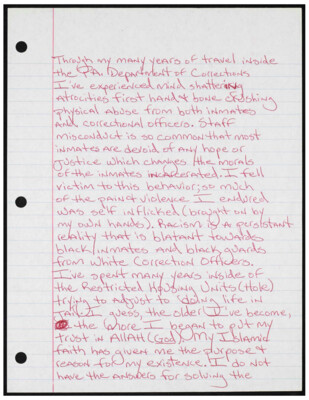 Through my many years of travel inside
the PA. Department of Corrections
I've experienced mind shattering
atrocities first hand & bone crushing
physical abuse from both inmates
and correctional officers. Staff
misconduct is so common that most
inmates are devoid of any hope or
justice which changes the morals
of the inmates incarcerated. I fell
victim to this behavior; so much
of the pain & violence I endured
was self inflicted (brought on by
my own hands). Racism is a persistant
reality that is blatant towards
black/inmates and black guards
from White Correction Officers.
I've spent many years inside of
the Restricted Housing Units (Hole)
trying to adjust to doing life in
jail. I guess, the older I've become,
the more I began to put my
trust in Allah (God). My Islamic
faith has given me the purpose &
reason for my existence. I do not
have the answers for solving the